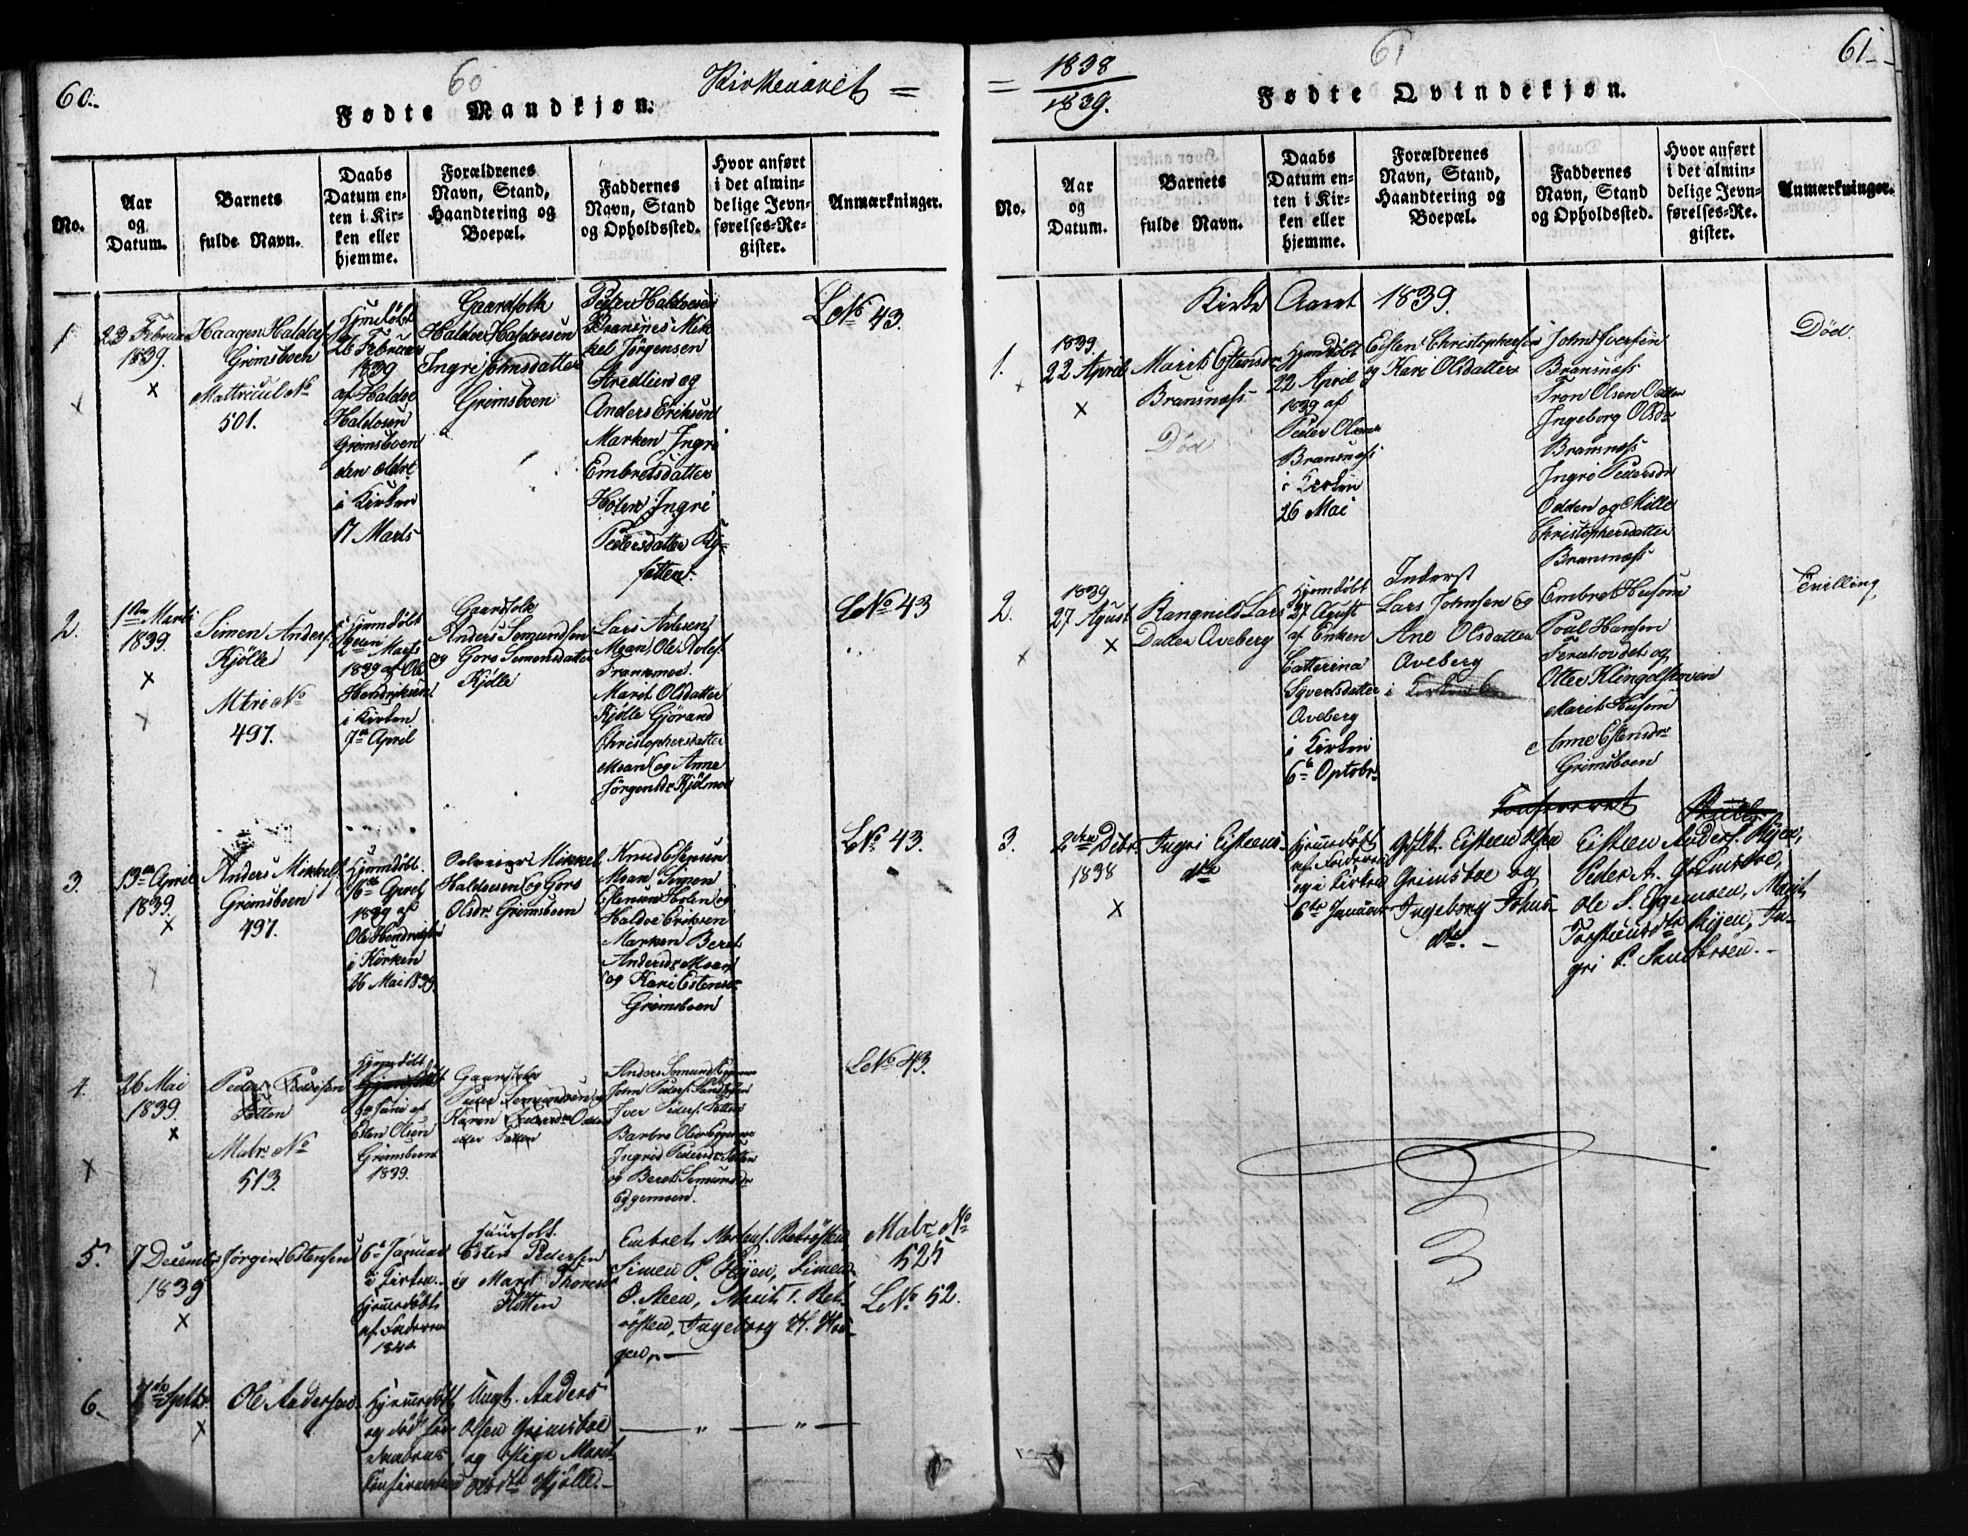 60.
60
Kirkeaaret =
Fødte Mandkjøn.
No.
Aar
og
Datum.
Barnets
fulde Navn.
Daabs
Datum en-
ten i Kir-
ken eller
hjemme.
Forældrenes
Navn, Stand,
Haandtering og
Boepæl.
Faddernes
Navn, Stand
og Opholdssted.
Hvor anført
i det almin-
delige Jevn-
førelses-Re-
gister.
Anmærkninger.
1
23 Februar
1839.
×
Haagen Haldors
Grimsboen
Mattricul No
501.
Hjmdøbt
26 Februar
1839
af Haldoe
Haldosen
Grimsboen
den ældre
i Kirken
17 Marts
Gaardfolk
Haldoe Haldoesen
Ingri Johnsdatter
Grimsboen
Peder Haldoesen
Bransnes Mik
kel Jørgensen
Stredlien og
Anders Eriksen
Marken Ingri
Embretsdatter
Holen Ingri
Pedersdatter
fatten.
L No 43.
2.
1ste Marti
1839.
×
Simen Anders.
Kjølle
Mtri No
497.
Hjemdøbt
Marts
1839 af Ole
Hendriksen
i Kirken
7de April
Gaardfolk
Anders Semundsen
og Goro Simensdatter
Kjølle
Lars
Moan Ole
Marit Olsdatter
Kjølle Gjørand
Christophersdatter
Moan og Anne
Jørgensdr Kjølmoe
L No 43
3.
13de April
1839.
×
Anders Mikkels.
Grimsboen
497.
Hjemdøbt
16de April
1839 af
Ole Hendriks
i Kirken
26 Mai 1839
Mikkel
Haldoesen og Goro
Olsdr. Grimsboen
Knud Estensen
Moan Simen
Estensen Holen og
Haldoe Eriksen
Marken Beret
Andersdr Moen
og Kari Estensdr
Grimsboen
L No 43.
4.
26 Mai
1839.
×
Peder Pedersen
Fatten
Matr. No
513.
Hjemdøbt
Juni af
Esten Olsen
Grimsboen
1839.
Gaardfolk
Peder Semundsen og
Karen
eller Fatten
Anders Semunds
John Peders.
Iver Peders. Fatten
Barbro Olsdr
Ingrid Pedersdr Fatten
og Beret Semundsdr
Eggemoen.
L No 43.
5.
7 December
1839
×
Jørgen Estensen
6te Januar
i Kirken.
hjemmedøbt
af Faderen
1840
Huusfolk.
Esten Pedersen
og Marit Thores
Flatten
Embret Mortens.
Simen P. Ryen, Simen
O. Moen, Marit T.
Ingeborg H.
gen, —
Matr No
525
L No 52.
6.
7de Septbr.
×
Ole Andersen
Hjemmedøbt
og død før
Daabens
Confirmation
Ungk. Anders
Olsen Grimsboe
og Pige Marit
Olsdtr Kjølle. —
— „ — „ —
= 1838
1839.
61
61
Fødte Qvindekjøn.
No.
Aar
og
Datum.
Barnets
fulde Navn.
Daabs
Datum en-
ten i Kir-
ken eller
hjemme.
Forældrenes
Navn, Stand,
Haandtering og
Boepæl.
Faddernes
Navn, Stand
og Opholdssted.
Hvor anført
i det almin-
delige Jevn-
førelses-Re-
gister.
Anmærkninger.
Kirke Aaret 1839.
1.
1839.
22 April
×
Marit Estensdr
Bransnæss
Død
Hjemdøbt
22 April
1839 af
Peder Olsen
Bransnæss
i Kirken
26 Mai
Eisten Christophersen
og Kari Olsdatter
John Iversen
Bransnæss
Tron Olsen Odden
Ingeborg Olsdr
Bransnæss
Ingri Pedersdr
Odden og Mille
Christophersdatter
Bransnæss
Død.
2.
1839
27 Agust
×
Rangnild Lars
Datter Aveberg
Hjemdøbt
27 Agust
af Enken
Catterina
Syversdatter
Aveberg
i Kirken
6te Optobr.
Inderst
Lars Johnsen og
Ane Olsdatter
Aveberg
i Kirken
Embret Husom
Poul Hansen
og
Otter Klingelsteven
Marit Husom
Anne Estensdr
Grimsboen
Tvilling
3.
2den Decbr.
1838
×
Ingri Eisteens-
dtr
Hjemmedøbt
af Faderen
og i Kirken
6te Januar
Gflk. Eisteen Olsen
Grimsboe og
Ingeborg Johns-
dtr. —
Confereret
Eisteen Anders. Ryen,
Peder A. Grimsboe,
Ole S. Eggemoen, Marit
Torsteinsdtr Ryen, In-
gri P. Sandbroen. —